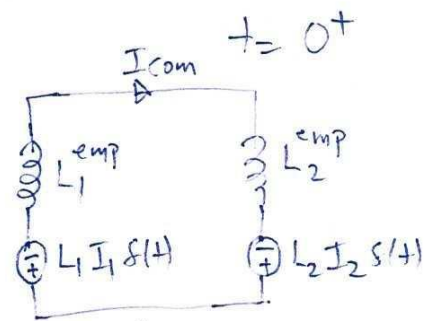 t = 0⁺
Icom
L₁ᵉᵐᵖ
L₂ᵉᵐᵖ
L₁ I₁ δ(t)
L₂ I₂ δ(t)